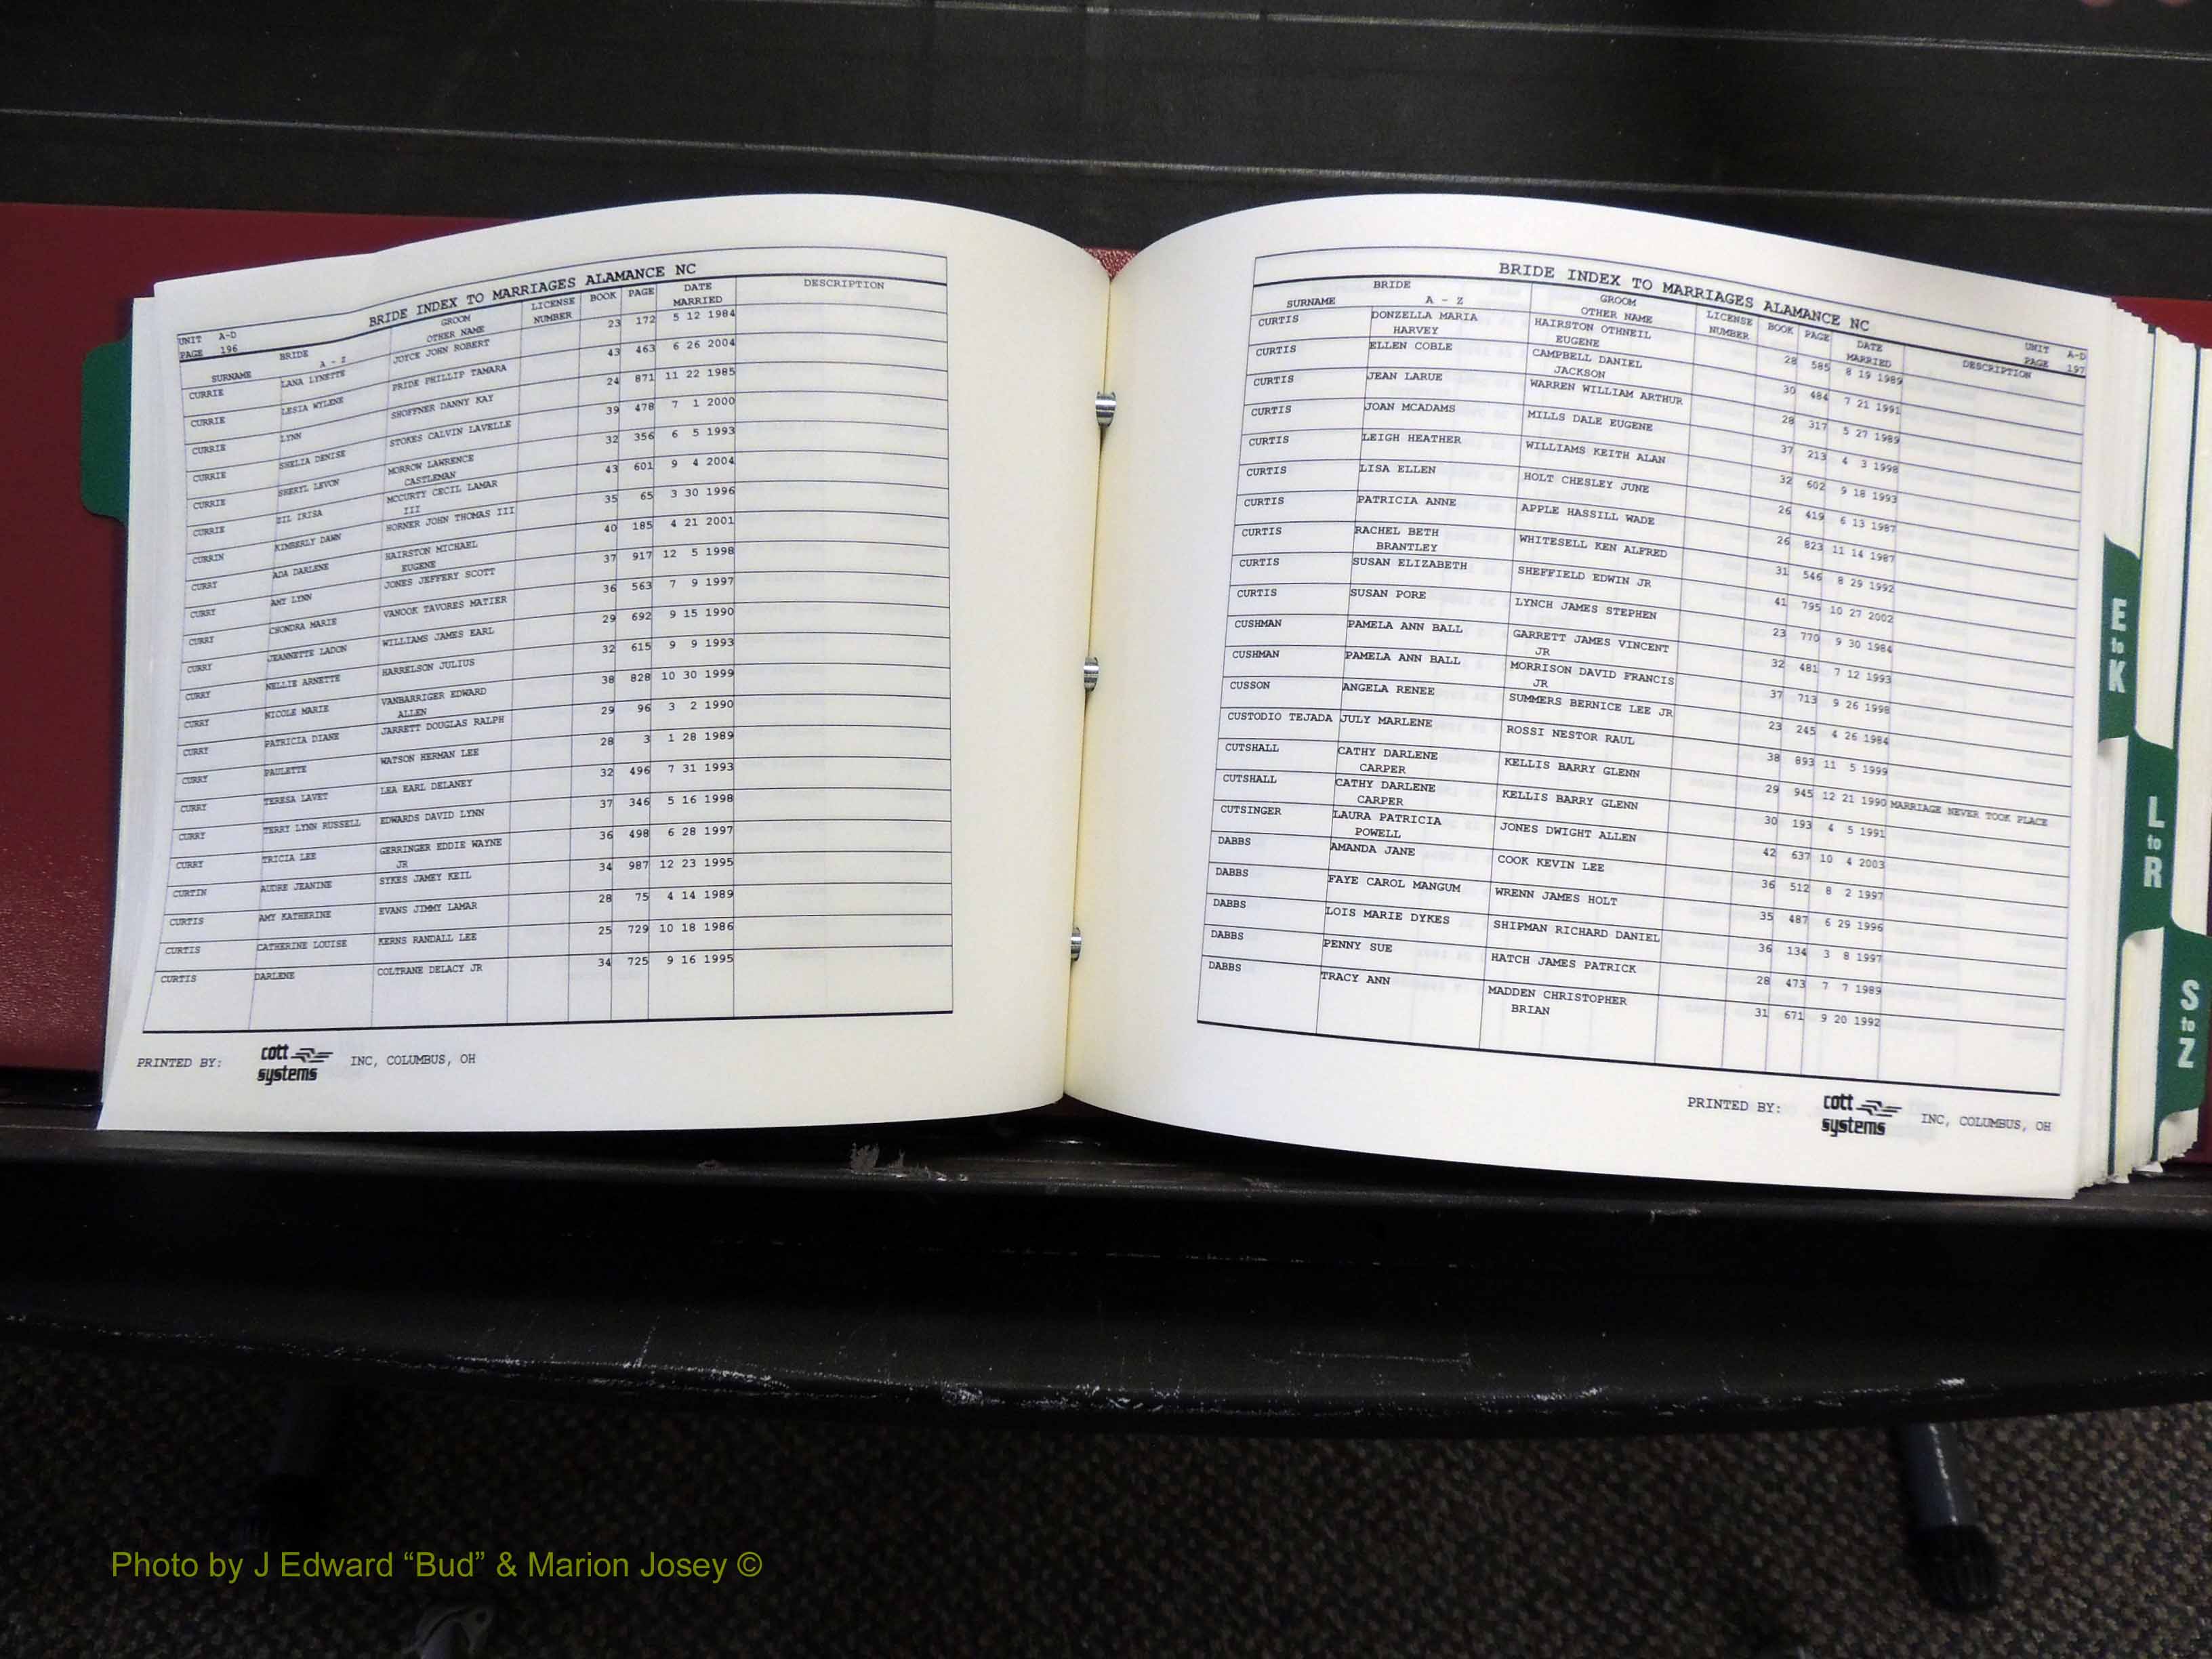 BRIDE INDEX TO MARRIAGES ALAMANCE NC
UNIT A-D
PAGE 196
SURNAME BRIDE A - Z GROOM OTHER NAME LICENSE NUMBER BOOK PAGE DATE MARRIED DESCRIPTION
CURRIE LANA LYNETTE JOYCE JOHN ROBERT 23 172 5 12 1984
CURRIE LESIA WYLENE PRIDE PHILLIP TAMARA 43 463 6 26 2004
CURRIE LYNN SHOFFNER DANNY KAY 24 871 11 22 1985
CURRIE SHELIA DENISE STOKES CALVIN LAVELLE 39 478 7 1 2000
CURRIE SHERYL LEVON MORROW LAWRENCE 32 356 6 5 1993
CASTLEMAN
CURRIE ZIL IRISA MCCURTY CECIL LAMAR 43 601 9 4 2004
III
CURRIN KIMBERLY DAWN HORNER JOHN THOMAS III 35 65 3 30 1996
CURRY ADA DARLENE HAIRSTON MICHAEL 40 185 4 21 2001
EUGENE
CURRY AMY LYNN JONES JEFFERY SCOTT 37 917 12 5 1998
CURRY CHONDRA MARIE VANHOOK TAVORES MATIER 36 563 7 9 1997
CURRY JEANNETTE LADON WILLIAMS JAMES EARL 29 692 9 15 1990
CURRY NELLIE ARNETTE HARRELSON JULIUS 32 615 9 9 1993
CURRY NICOLE MARIE VANBARRIGER EDWARD 38 828 10 30 1999
ALLEN
CURRY PATRICIA DIANE JARRETT DOUGLAS RALPH 29 96 3 2 1990
CURRY PAULETTE WATSON HERMAN LEE 28 3 1 28 1989
CURRY TERESA LAVET LEA EARL DELANEY 32 496 7 31 1993
CURRY TERRY LYNN RUSSELL EDWARDS DAVID LYNN 37 346 5 16 1998
CURRY TRICIA LEE GERRINGER EDDIE WAYNE 36 498 6 28 1997
JR
CURTIN AUDRE JEANINE SYKES JAMEY KEIL 34 987 12 23 1995
CURTIS AMY KATHERINE EVANS JIMMY LAMAR 28 75 4 14 1989
CURTIS CATHERINE LOUISE KERNS RANDALL LEE 25 729 10 18 1986
CURTIS DARLENE COLTRANE DELACY JR 34 725 9 16 1995
PRINTED BY: cott systems INC, COLUMBUS, OH
BRIDE INDEX TO MARRIAGES ALAMANCE NC
UNIT A-D
PAGE 197
SURNAME BRIDE A - Z GROOM OTHER NAME LICENSE NUMBER BOOK PAGE DATE MARRIED DESCRIPTION
CURTIS DONZELLA MARIA HAIRSTON OTHNEIL 28 585 8 19 1989
HARVEY EUGENE
CURTIS ELLEN COBLE CAMPBELL DANIEL 30 484 7 21 1991
JACKSON
CURTIS JEAN LARUE WARREN WILLIAM ARTHUR 28 317 5 27 1989
CURTIS JOAN MCADAMS MILLS DALE EUGENE 37 213 4 3 1998
CURTIS LEIGH HEATHER WILLIAMS KEITH ALAN 32 602 9 18 1993
CURTIS LISA ELLEN HOLT CHESLEY JUNE 26 419 6 13 1987
CURTIS PATRICIA ANNE APPLE HASSILL WADE 26 823 11 14 1987
CURTIS RACHEL BETH WHITESELL KEN ALFRED 31 546 8 29 1992
BRANTLEY
CURTIS SUSAN ELIZABETH SHEFFIELD EDWIN JR 41 795 10 27 2002
CURTIS SUSAN PORE LYNCH JAMES STEPHEN 23 770 9 30 1984
CUSHMAN PAMELA ANN BALL GARRETT JAMES VINCENT 32 481 7 12 1993
JR
CUSHMAN PAMELA ANN BALL MORRISON DAVID FRANCIS 37 713 9 26 1998
JR
CUSSON ANGELA RENEE SUMMERS BERNICE LEE JR 23 245 4 26 1984
CUSTODIO TEJADA JULY MARLENE ROSSI NESTOR RAUL 38 893 11 5 1999
CUTSHALL CATHY DARLENE KELLIS BARRY GLENN 29 945 12 21 1990 MARRIAGE NEVER TOOK PLACE
CARPER
CUTSHALL CATHY DARLENE KELLIS BARRY GLENN 30 193 4 5 1991
CARPER
CUTSINGER LAURA PATRICIA JONES DWIGHT ALLEN 42 637 10 4 2003
POWELL
DABBS AMANDA JANE COOK KEVIN LEE 36 512 8 2 1997
DABBS FAYE CAROL MANGUM WRENN JAMES HOLT 35 487 6 29 1996
DABBS LOIS MARIE DYKES SHIPMAN RICHARD DANIEL 36 134 3 8 1997
DABBS PENNY SUE HATCH JAMES PATRICK 28 473 7 7 1989
DABBS TRACY ANN MADDEN CHRISTOPHER 31 671 9 20 1992
BRIAN
PRINTED BY: cott systems INC, COLUMBUS, OH
E to K
L to R
S to Z
Photo by J Edward “Bud” & Marion Josey ©